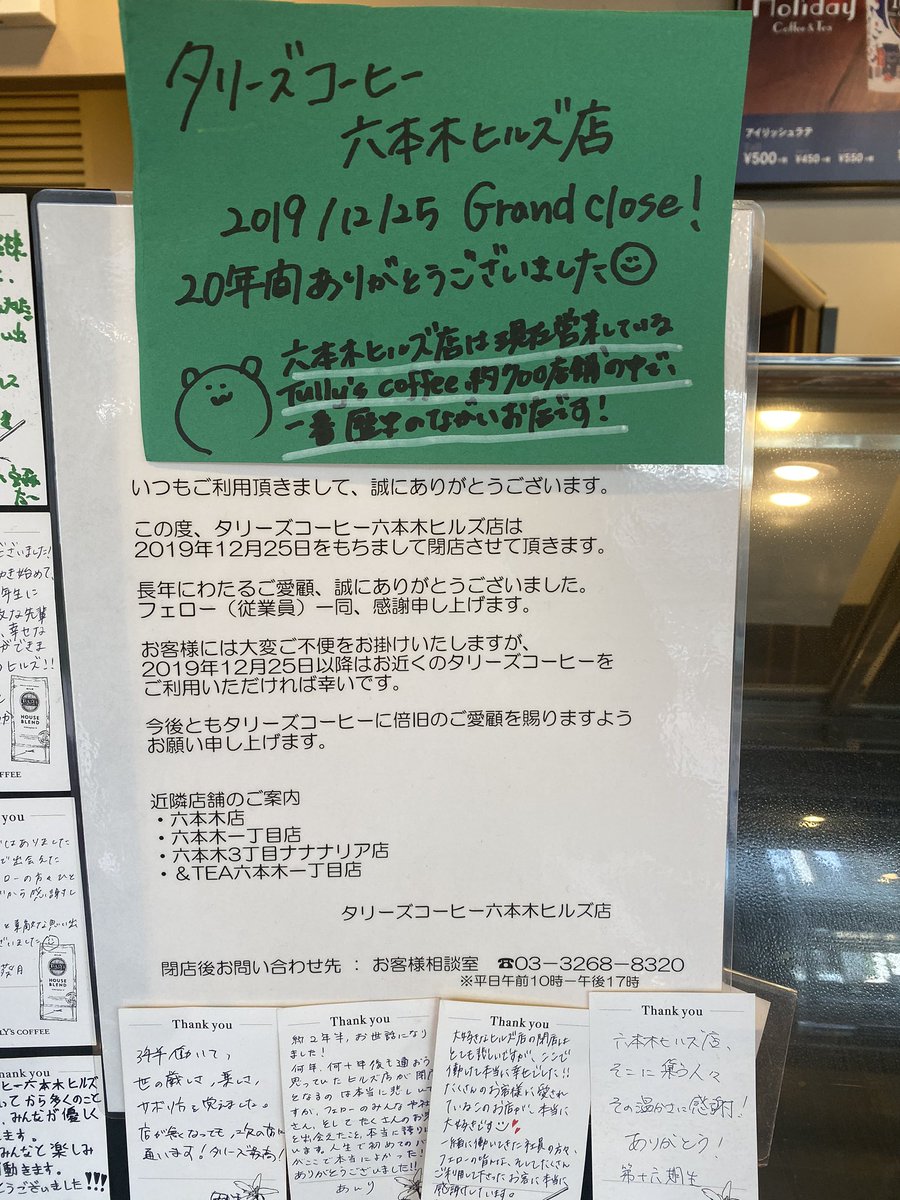 Holiday
Coffee & Tea
アイリッシュラテ
¥500 ¥450 ¥550
タリーズコーヒー
六本木ヒルズ店
2019/12/25 Grand close!
20年間ありがとうございました
六本木ヒルズ店は現在営業している
Tully's coffee 約700店舗の中で、
一番歴史のながいお店です!
いつもご利用頂きまして、誠にありがとうございます。
この度、タリーズコーヒー六本木ヒルズ店は
2019年12月25日をもちまして閉店させて頂きます。
長年にわたるご愛顧、誠にありがとうございました。
フェロー（従業員）一同、感謝申し上げます。
お客様には大変ご不便をお掛けいたしますが、
2019年12月25日以降はお近くのタリーズコーヒーを
ご利用いただければ幸いです。
今後ともタリーズコーヒーに倍旧のご愛顧を賜りますよう
お願い申し上げます。
近隣店舗のご案内
・六本木店
・六本木一丁目店
・六本木3丁目ナナナリア店
・&TEA六本木一丁目店
タリーズコーヒー六本木ヒルズ店
閉店後お問い合わせ先 : お客様相談室 ☎03-3268-8320
※平日午前10時−午後17時
ございました!
き始めて、
年生に
な先輩
、幸せな
ができま
ヒルズ!!
HOUSE
BLEND
COFFEE
you
はありました
で出会えた
ローの方々ひと
から感謝し
HOUSE
BLEND
LLY'S COFFEE
ヒー六本木ヒルズ
いてから多くのこと
、みんなが優しく
ます。
みんなと楽しみ
動きます。
とうございました!!!
Thank you
3年半働いて、
世の厳しさ、楽しさ、
サボり方を覚えました。
店が無くなっても、次の店に
通います!タリーズ最高!
Thank you
約2年半、お世話になり
ました!
何年、何十年後も通おう
思っていたヒルズ店が閉店
となるのは本当に悲しい
すが、フェローのみんなや社
さん、そしてたくさんのお客
と出会えたこと、本当に誇り
います。人生で初めてのバ
がここで本当によかった!
ありがとうございました!!
あんり
Thank you
大好きなヒルズ店の閉店は
とても悲しいですが、ここで
働けて本当に幸せでした!!
たくさんのお客様に愛され
ているこのお店が、本当に
大好きです
一緒に働いてきた社員の方々、
フェローの皆んな、そしてたくさん
ご利用して下さったお客様に本当に
感謝しています。
Thank you
六本木ヒルズ店、
そこに集う人々
その温かさに感謝!
ありがとう!
第十六期生